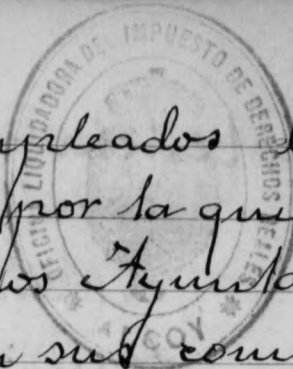 OFICINA LIQUIDADORA DEL IMPUESTO DE DERECHOS REALES
* ALCOY *
mpleados
por la qu
os Ayunta
n sus com